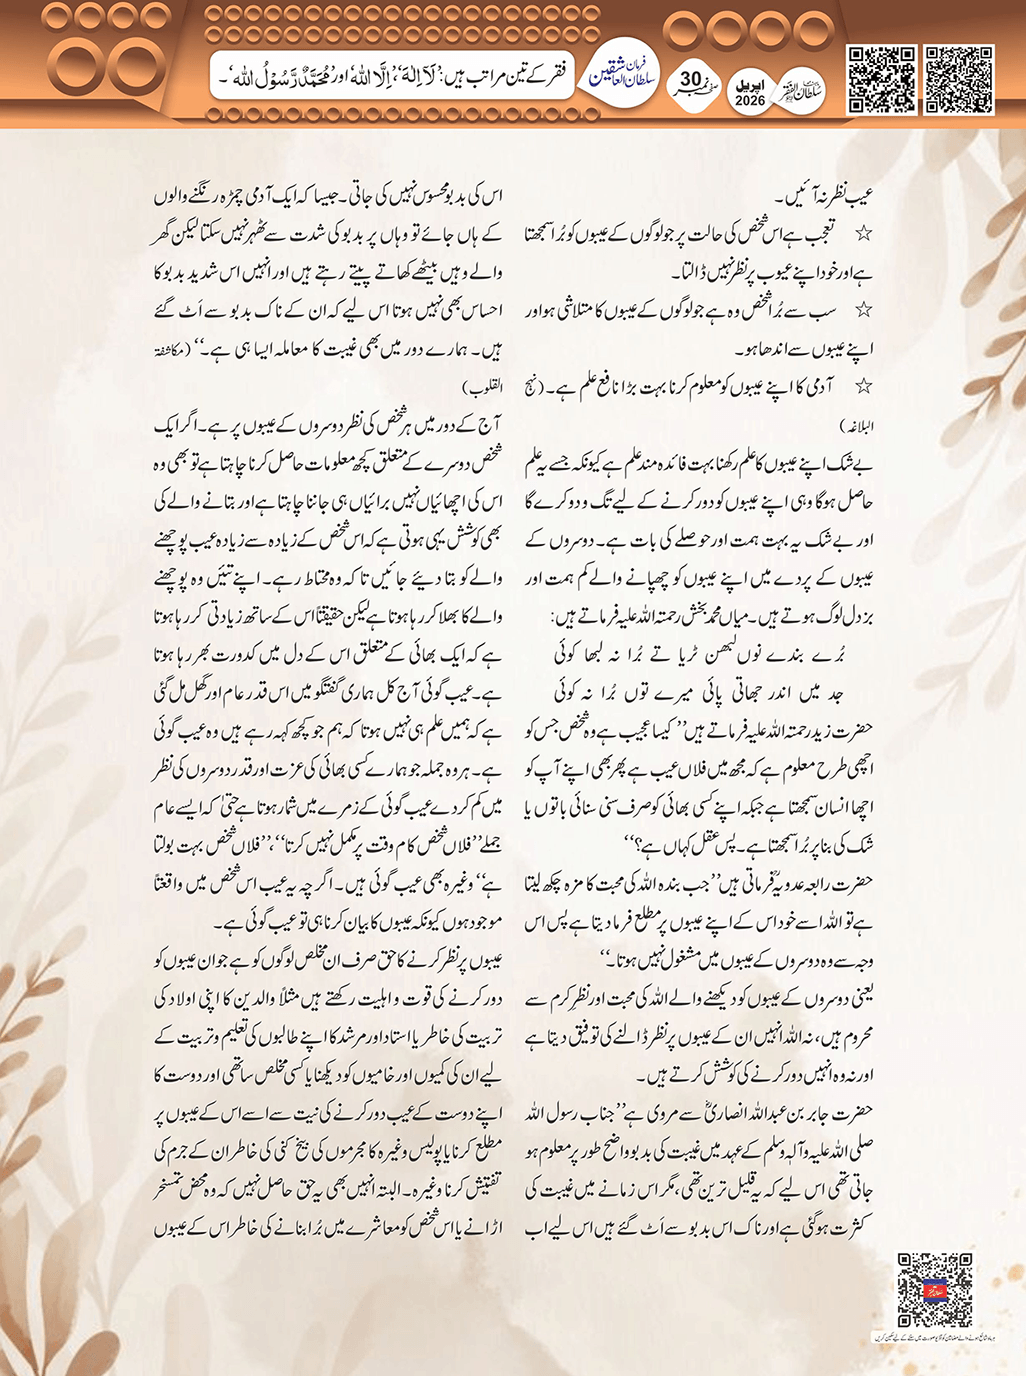 فقر کے تین مراتب ہیں: ’لَآ اِلٰہَ‘، ’اِلَّا اللہُ‘ اور ’مُحَمَّدٌ رَّسُوْلُ اللہ‘۔
فرمان سلطان العاشقین
صفحہ نمبر 30
اپریل 2026
سلطان الفقر
عیب نظر نہ آئیں۔
☆ تعجب ہے اس شخص کی حالت پر جو لوگوں کے عیبوں کو بُرا سمجھتا
ہے اور خود اپنے عیوب پر نظر نہیں ڈالتا۔
☆ سب سے بُرا شخص وہ ہے جو لوگوں کے عیبوں کا متلاشی ہو اور
اپنے عیبوں سے اندھا ہو۔
☆ آدمی کا اپنے عیبوں کو معلوم کرنا بہت بڑا نافع علم ہے۔ (نہج
البلاغہ)
بے شک اپنے عیبوں کا علم رکھنا بہت فائدہ مند علم ہے کیونکہ جسے یہ علم
حاصل ہوگا وہی اپنے عیبوں کو دور کرنے کے لیے تگ و دو کرے گا
اور بے شک یہ بہت ہمت اور حوصلے کی بات ہے۔ دوسروں کے
عیبوں کے پردے میں اپنے عیبوں کو چھپانے والے کم ہمت اور
بزدل لوگ ہوتے ہیں۔ میاں محمد بخش رحمتہ اللہ علیہ فرماتے ہیں:
بُرے بندے نوں لبھن ٹریا تے بُرا نہ لبھا کوئی
جد میں اندر جھاتی پائی میرے توں بُرا نہ کوئی
حضرت زید رحمتہ اللہ علیہ فرماتے ہیں ’’کیسا عجیب ہے وہ شخص جس کو
اچھی طرح معلوم ہے کہ مجھ میں فلاں عیب ہے پھر بھی اپنے آپ کو
اچھا انسان سمجھتا ہے جبکہ اپنے کسی بھائی کو صرف سنی سنائی باتوں یا
شک کی بنا پر بُرا سمجھتا ہے۔ پس عقل کہاں ہے؟‘‘
حضرت رابعہ عدویہؒ فرماتی ہیں ’’جب بندہ اللہ کی محبت کا مزہ چکھ لیتا
ہے تو اللہ اسے خود اس کے اپنے عیبوں پر مطلع فرما دیتا ہے پس اس
وجہ سے وہ دوسروں کے عیبوں میں مشغول نہیں ہوتا۔‘‘
یعنی دوسروں کے عیبوں کو دیکھنے والے اللہ کی محبت اور نظرِ کرم سے
محروم ہیں، نہ اللہ انہیں ان کے عیبوں پر نظر ڈالنے کی توفیق دیتا ہے
اور نہ وہ انہیں دور کرنے کی کوشش کرتے ہیں۔
حضرت جابر بن عبداللہ انصاریؓ سے مروی ہے ’’جناب رسول اللہ
صلی اللہ علیہ وآلہٖ وسلم کے عہد میں غیبت کی بدبو واضح طور پر معلوم ہو
جاتی تھی اس لیے کہ یہ قلیل ترین تھی، مگر اس زمانے میں غیبت کی
کثرت ہوگئی ہے اور ناک اس بدبو سے اَٹ گئے ہیں اس لیے اب
اس کی بدبو محسوس نہیں کی جاتی۔ جیسا کہ ایک آدمی چمڑہ رنگنے والوں
کے ہاں جائے تو وہاں پر بدبو کی شدت سے ٹھہر نہیں سکتا لیکن گھر
والے وہیں بیٹھے کھاتے پیتے رہتے ہیں اور انہیں اس شدید بدبو کا
احساس بھی نہیں ہوتا اس لیے کہ ان کے ناک بدبو سے اَٹ گئے
ہیں۔ ہمارے دور میں بھی غیبت کا معاملہ ایسا ہی ہے۔‘‘ (مکاشفۃ
القلوب)
آج کے دور میں ہر شخص کی نظر دوسروں کے عیبوں پر ہے۔ اگر ایک
شخص دوسرے کے متعلق کچھ معلومات حاصل کرنا چاہتا ہے تو بھی وہ
اس کی اچھائیاں نہیں برائیاں ہی جاننا چاہتا ہے اور بتانے والے کی
بھی کوشش یہی ہوتی ہے کہ اس شخص کے زیادہ سے زیادہ عیب پوچھنے
والے کو بتا دیئے جائیں تاکہ وہ محتاط رہے۔ اپنے تئیں وہ پوچھنے
والے کا بھلا کر رہا ہوتا ہے لیکن حقیقتاً اس کے ساتھ زیادتی کر رہا ہوتا
ہے کہ ایک بھائی کے متعلق اس کے دل میں کدورت بھر رہا ہوتا
ہے۔ عیب گوئی آج کل ہماری گفتگو میں اس قدر عام اور گھل مل گئی
ہے کہ ہمیں علم ہی نہیں ہوتا کہ ہم جو کچھ کہہ رہے ہیں وہ عیب گوئی
ہے۔ ہر وہ جملہ جو ہمارے کسی بھائی کی عزت اور قدر دوسروں کی نظر
میں کم کر دے عیب گوئی کے زمرے میں شمار ہوتا ہے حتیٰ کہ ایسے عام
جملے ’’فلاں شخص کام وقت پر مکمل نہیں کرتا‘‘، ’’فلاں شخص بہت بولتا
ہے‘‘ وغیرہ بھی عیب گوئی ہیں۔ اگرچہ یہ عیب اس شخص میں واقعتاً
موجود ہوں کیونکہ عیبوں کا بیان کرنا ہی تو عیب گوئی ہے۔
عیبوں پر نظر کرنے کا حق صرف ان مخلص لوگوں کو ہے جو ان عیبوں کو
دور کرنے کی قوت و اہلیت رکھتے ہیں مثلاً والدین کا اپنی اولاد کی
تربیت کی خاطر یا استاد اور مرشد کا اپنے طالبوں کی تعلیم و تربیت کے
لیے ان کی کمیوں اور خامیوں کو دیکھنا یا کسی مخلص ساتھی اور دوست کا
اپنے دوست کے عیب دور کرنے کی نیت سے اسے اس کے عیبوں پر
مطلع کرنا یا پولیس وغیرہ کا مجرموں کی بیخ کنی کی خاطر ان کے جرم کی
تفتیش کرنا وغیرہ۔ البتہ انہیں بھی یہ حق حاصل نہیں کہ وہ محض تمسخر
اڑانے یا اس شخص کو معاشرے میں بُرا بنانے کی خاطر اس کے عیبوں